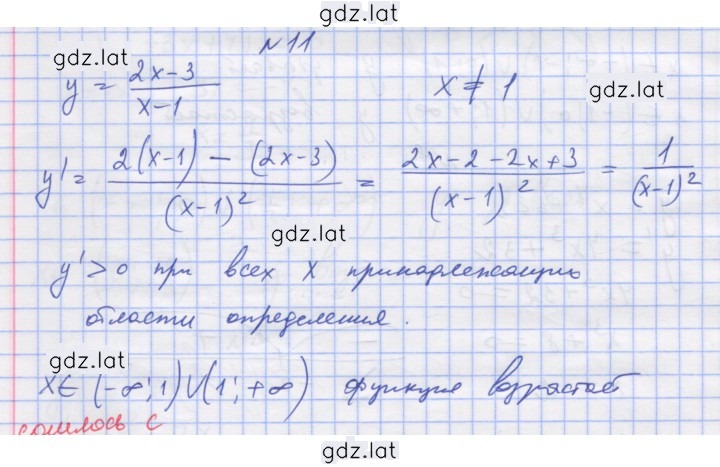 gdz.lat
№11
gdz.lat
y = (2x-3)/(x-1)
x ≠ 1
gdz.lat
y' = (2(x-1) - (2x-3))/(x-1)² = (2x-2-2x+3)/(x-1)² = 1/(x-1)²
gdz.lat
y' > 0 при всех x принадлежащих
области определения.
gdz.lat
x∈(-∞;1)∪(1;+∞) функция возрастает
сошлось с
gdz.lat